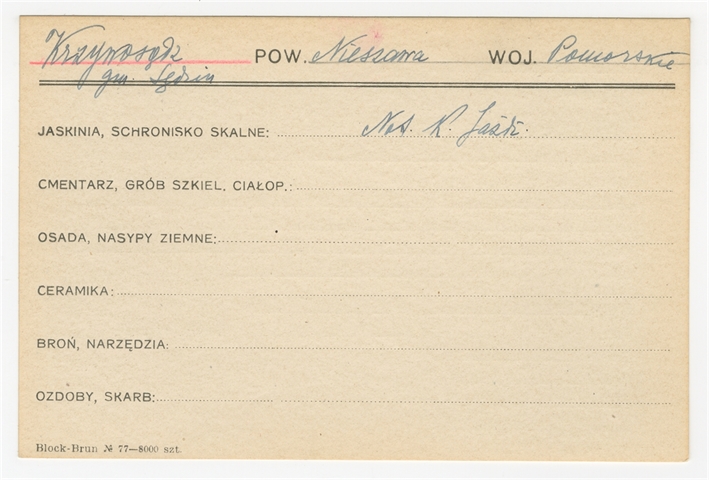 Krzywosądz POW. Nieszawa WOJ. Pomorskie
gm. Sędzin
JASKINIA, SCHRONISKO SKALNE: Not. K. Jażdż.
CMENTARZ, GRÓB SZKIEL. CIAŁOP.:
OSADA, NASYPY ZIEMNE:
CERAMIKA:
BROŃ, NARZĘDZIA:
OZDOBY, SKARB:
Block-Brun № 77—8000 szt.